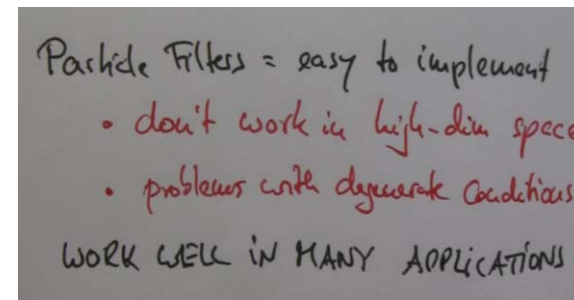 Particle Filters = easy to implement
• don't work in high-dim space
• problems with degenerate conditions
WORK WELL IN MANY APPLICATIONS